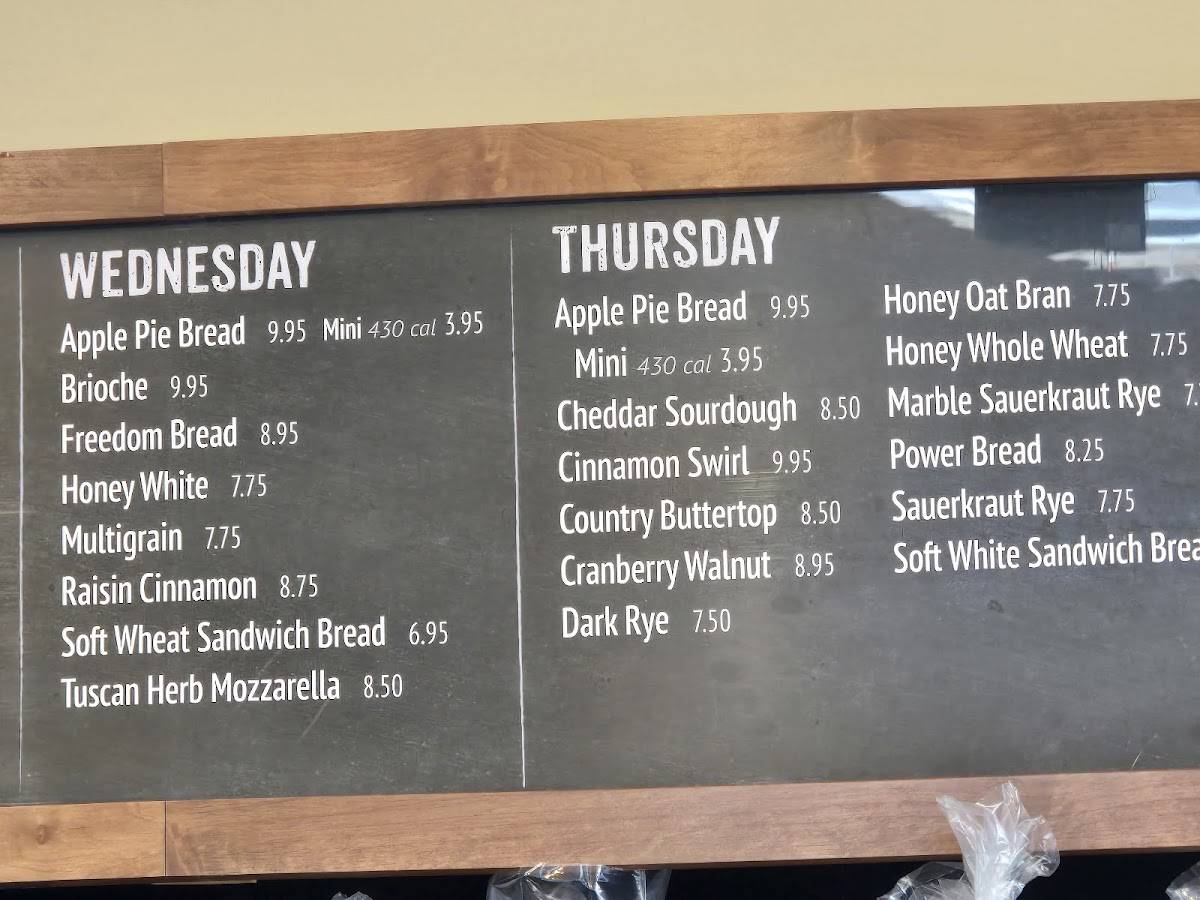 WEDNESDAY
Apple Pie Bread 9.95 Mini 430 cal 3.95
Brioche 9.95
Freedom Bread 8.95
Honey White 7.75
Multigrain 7.75
Raisin Cinnamon 8.75
Soft Wheat Sandwich Bread 6.95
Tuscan Herb Mozzarella 8.50
THURSDAY
Apple Pie Bread 9.95
Mini 430 cal 3.95
Cheddar Sourdough 8.50
Cinnamon Swirl 9.95
Country Buttertop 8.50
Cranberry Walnut 8.95
Dark Rye 7.50
Honey Oat Bran 7.75
Honey Whole Wheat 7.75
Marble Sauerkraut Rye
Power Bread 8.25
Sauerkraut Rye 7.75
Soft White Sandwich